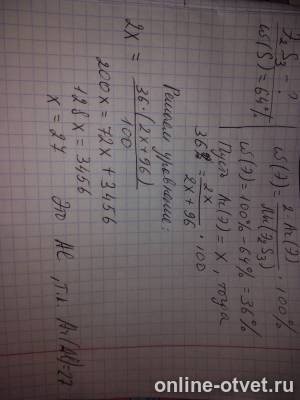 ?₂S₃ - ?
ω(S) = 64%
ω(?) = 2·Ar(?) / Mr(?₂S₃) · 100%
ω(?) = 100% - 64% = 36%
Пусть Ar(?) = x, тогда
36 = 2x / 2x + 96 · 100
Решаем уравнение:
2x = 36·(2x + 96) / 100
200x = 72x + 3456
128x = 3456
x = 27
Это Al, т.к. Ar(Al)=27
online-otvet.ru